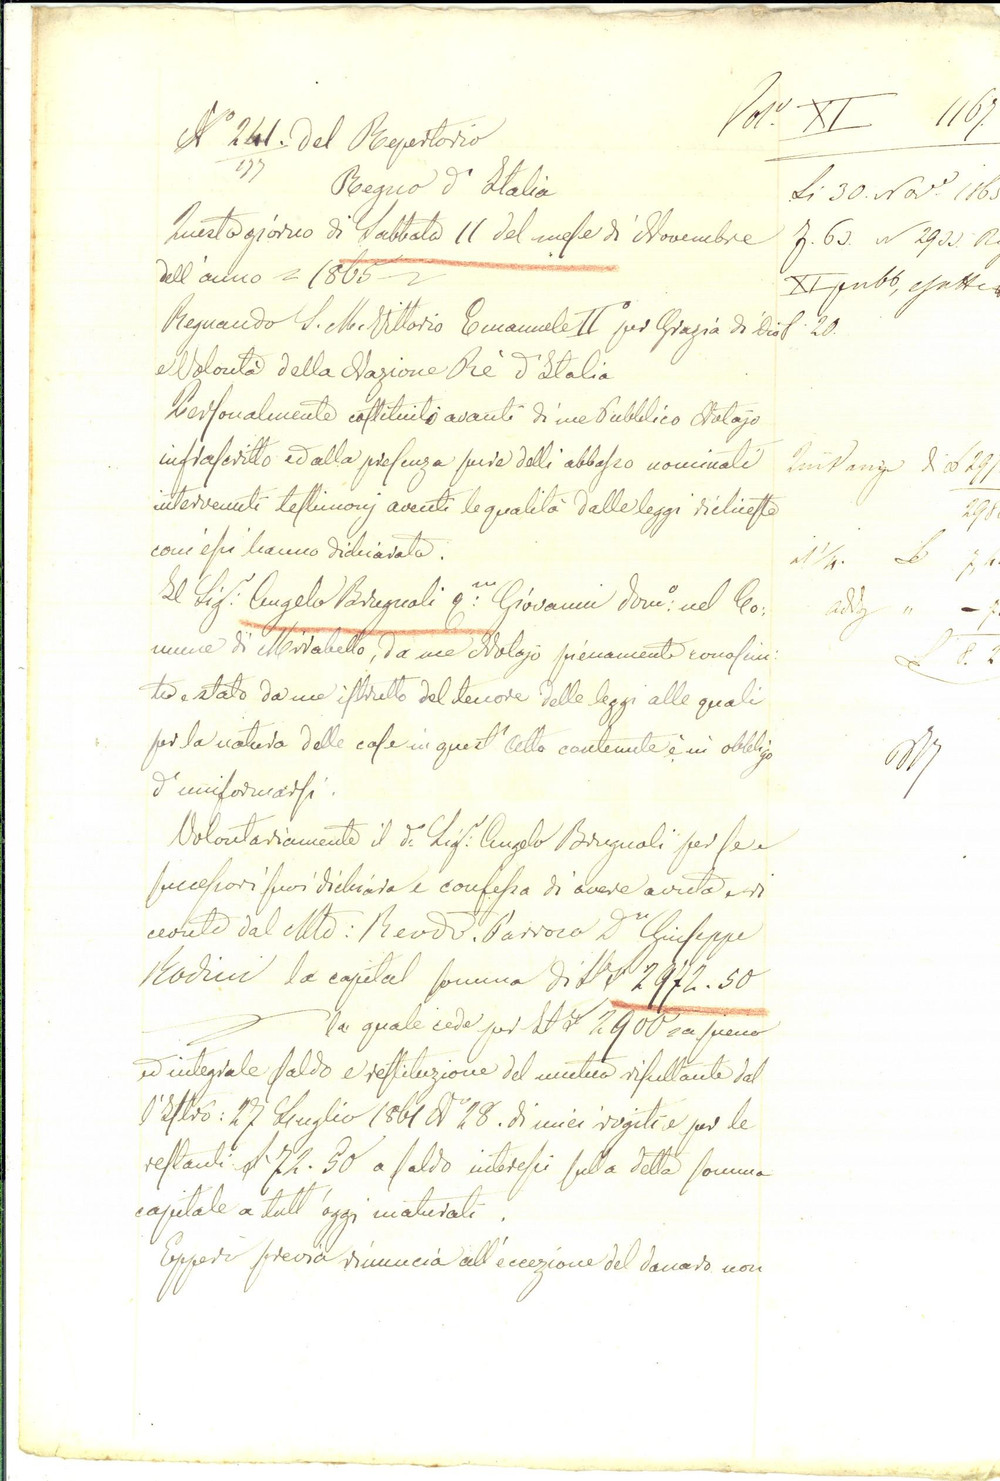 N.° 241. del Repertorio
177
Regno d'Italia
Questo giorno di Sabbato 11 del mese di Novembre
dell'anno = 1865 =
Regnando S. M. Vittorio Emanuele II° per Grazia di Dio
e Volontà della Nazione Rè d'Italia
Personalmente costituito avanti di me Pubblico Notajo
infrascritto ed alla presenza pure delli abbasso nominati
intervenuti testimonj aventi le qualità dalle leggi richieste
com'essi hanno dichiarato.
Il Sig.r Angelo Brugnoli q.m Giovanni dom.o nel Co:
mune di Mirabello, da me Notajo pienamente conosciu:
to e stato da me istrutto del tenore delle leggi alle quali
per la natura delle cose in quest'Atto contenute è in obbligo
d'uniformarsi.
Volontariamente il d.o Sig.r Angelo Brugnoli per se e
successori suoi dichiara e confessa di avere avuto e ri
cevuto dal Mto: Revdo. Parroco Dn Giuseppe
Rodini la capital somma di 2972.50
la quale cede per 2900 = a pieno
ed integrale saldo e restituzione del mutuo risultante dal
l'Istro: 27 Luglio 1861 N° 28. di miei rogiti e per le
restanti £ 72.50 a saldo interessi sulla detta somma
capitale a tutt'oggi maturati.
Epperò previa rinuncia all'eccezione del danaro non
Vol.e XI 1167.
Li 30. Nov.e 1865
f. 63. N 2933
XI pubb,
£ 20.
Quitanza di